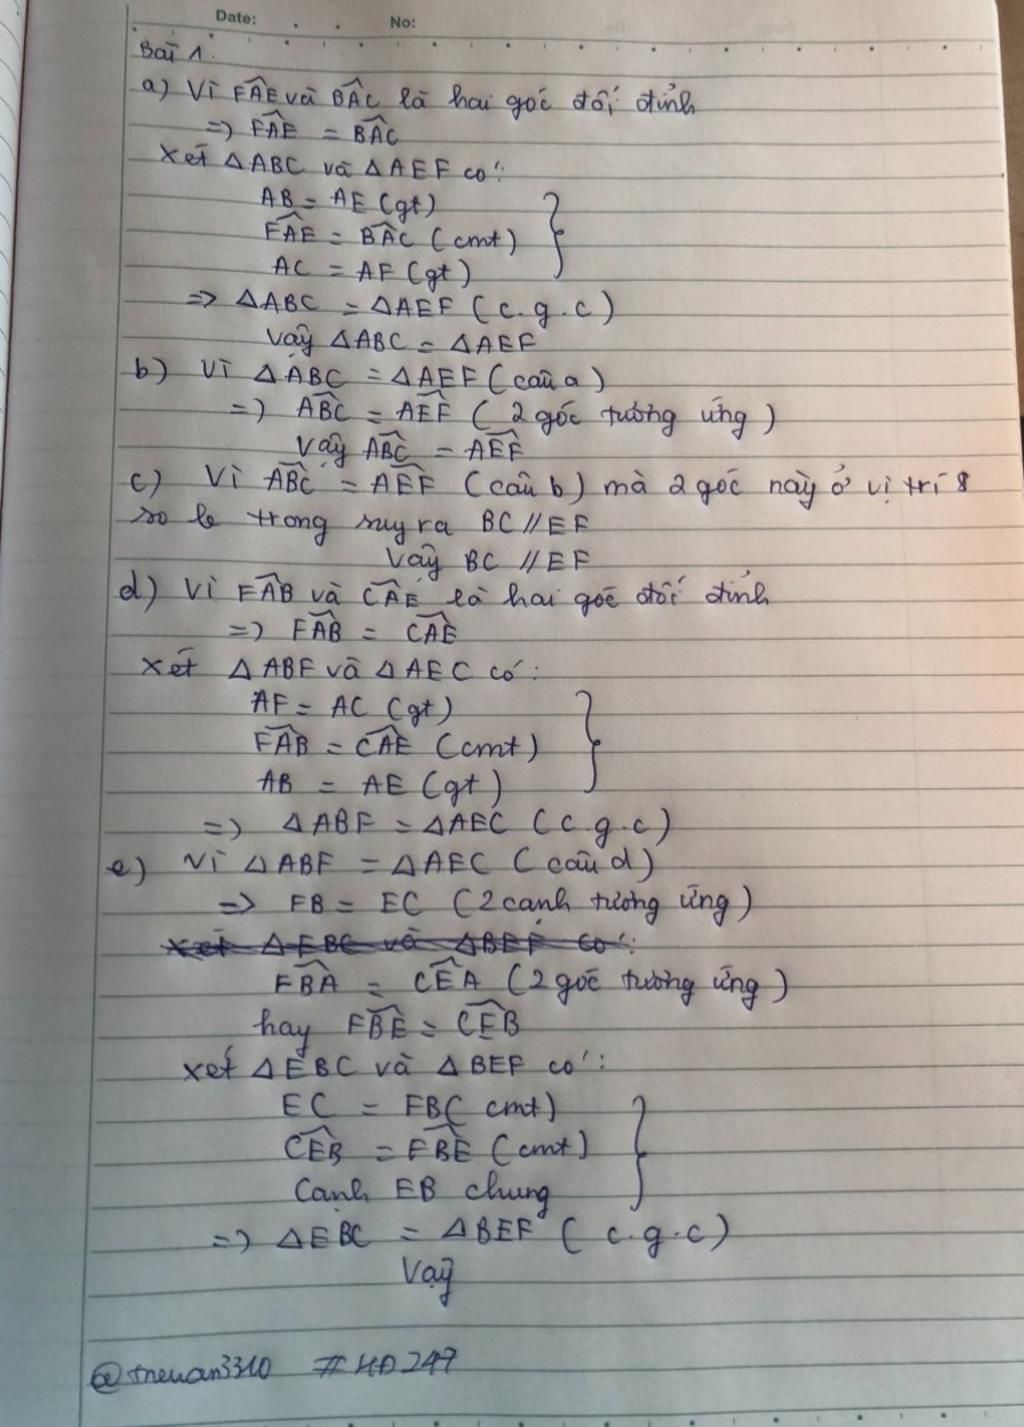 Date: No:
Bài 1.
a) Vì FAE và BAC là hai góc đối đỉnh
=> FAE = BAC
Xét ΔABC và ΔAEF có:
AB = AE (gt)
FAE = BAC (cmt)
AC = AF (gt)
=> ΔABC = ΔAEF (c.g.c)
Vậy ΔABC = ΔAEF
b) Vì ΔABC = ΔAEF (câu a)
=> ABC = AEF (2 góc tương ứng)
Vậy ABC = AEF
c) Vì ABC = AEF (câu b) mà 2 góc này ở vị trí
so le trong suy ra BC // EF
Vậy BC // EF
d) Vì FAB và CAE là hai góc đối đỉnh
=> FAB = CAE
Xét ΔABF và ΔAEC có:
AF = AC (gt)
FAB = CAE (cmt)
AB = AE (gt)
=> ΔABF = ΔAEC (c.g.c)
e) Vì ΔABF = ΔAEC (câu d)
=> FB = EC (2 cạnh tương ứng)
Xét ΔEBC và ΔBEF có:
FBA = CEA (2 góc tương ứng)
hay FBE = CEB
Xét ΔEBC và ΔBEF có:
EC = FB (cmt)
CEB = FBE (cmt)
Cạnh EB chung
=> ΔEBC = ΔBEF (c.g.c)
Vậy
#HD247